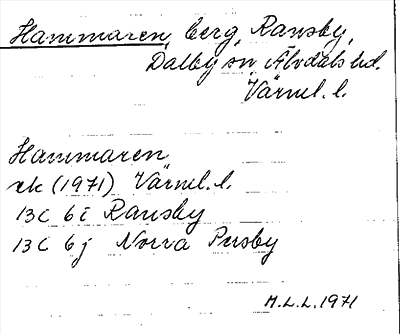 Hammaren, berg, Ransby,
Dalby sn, Älvdals hd.
Värml. l.
Hammaren
rk (1971) Värml. l.
13C 6i Ransby
13C 6j Norra Persby
M.L.L. 1971